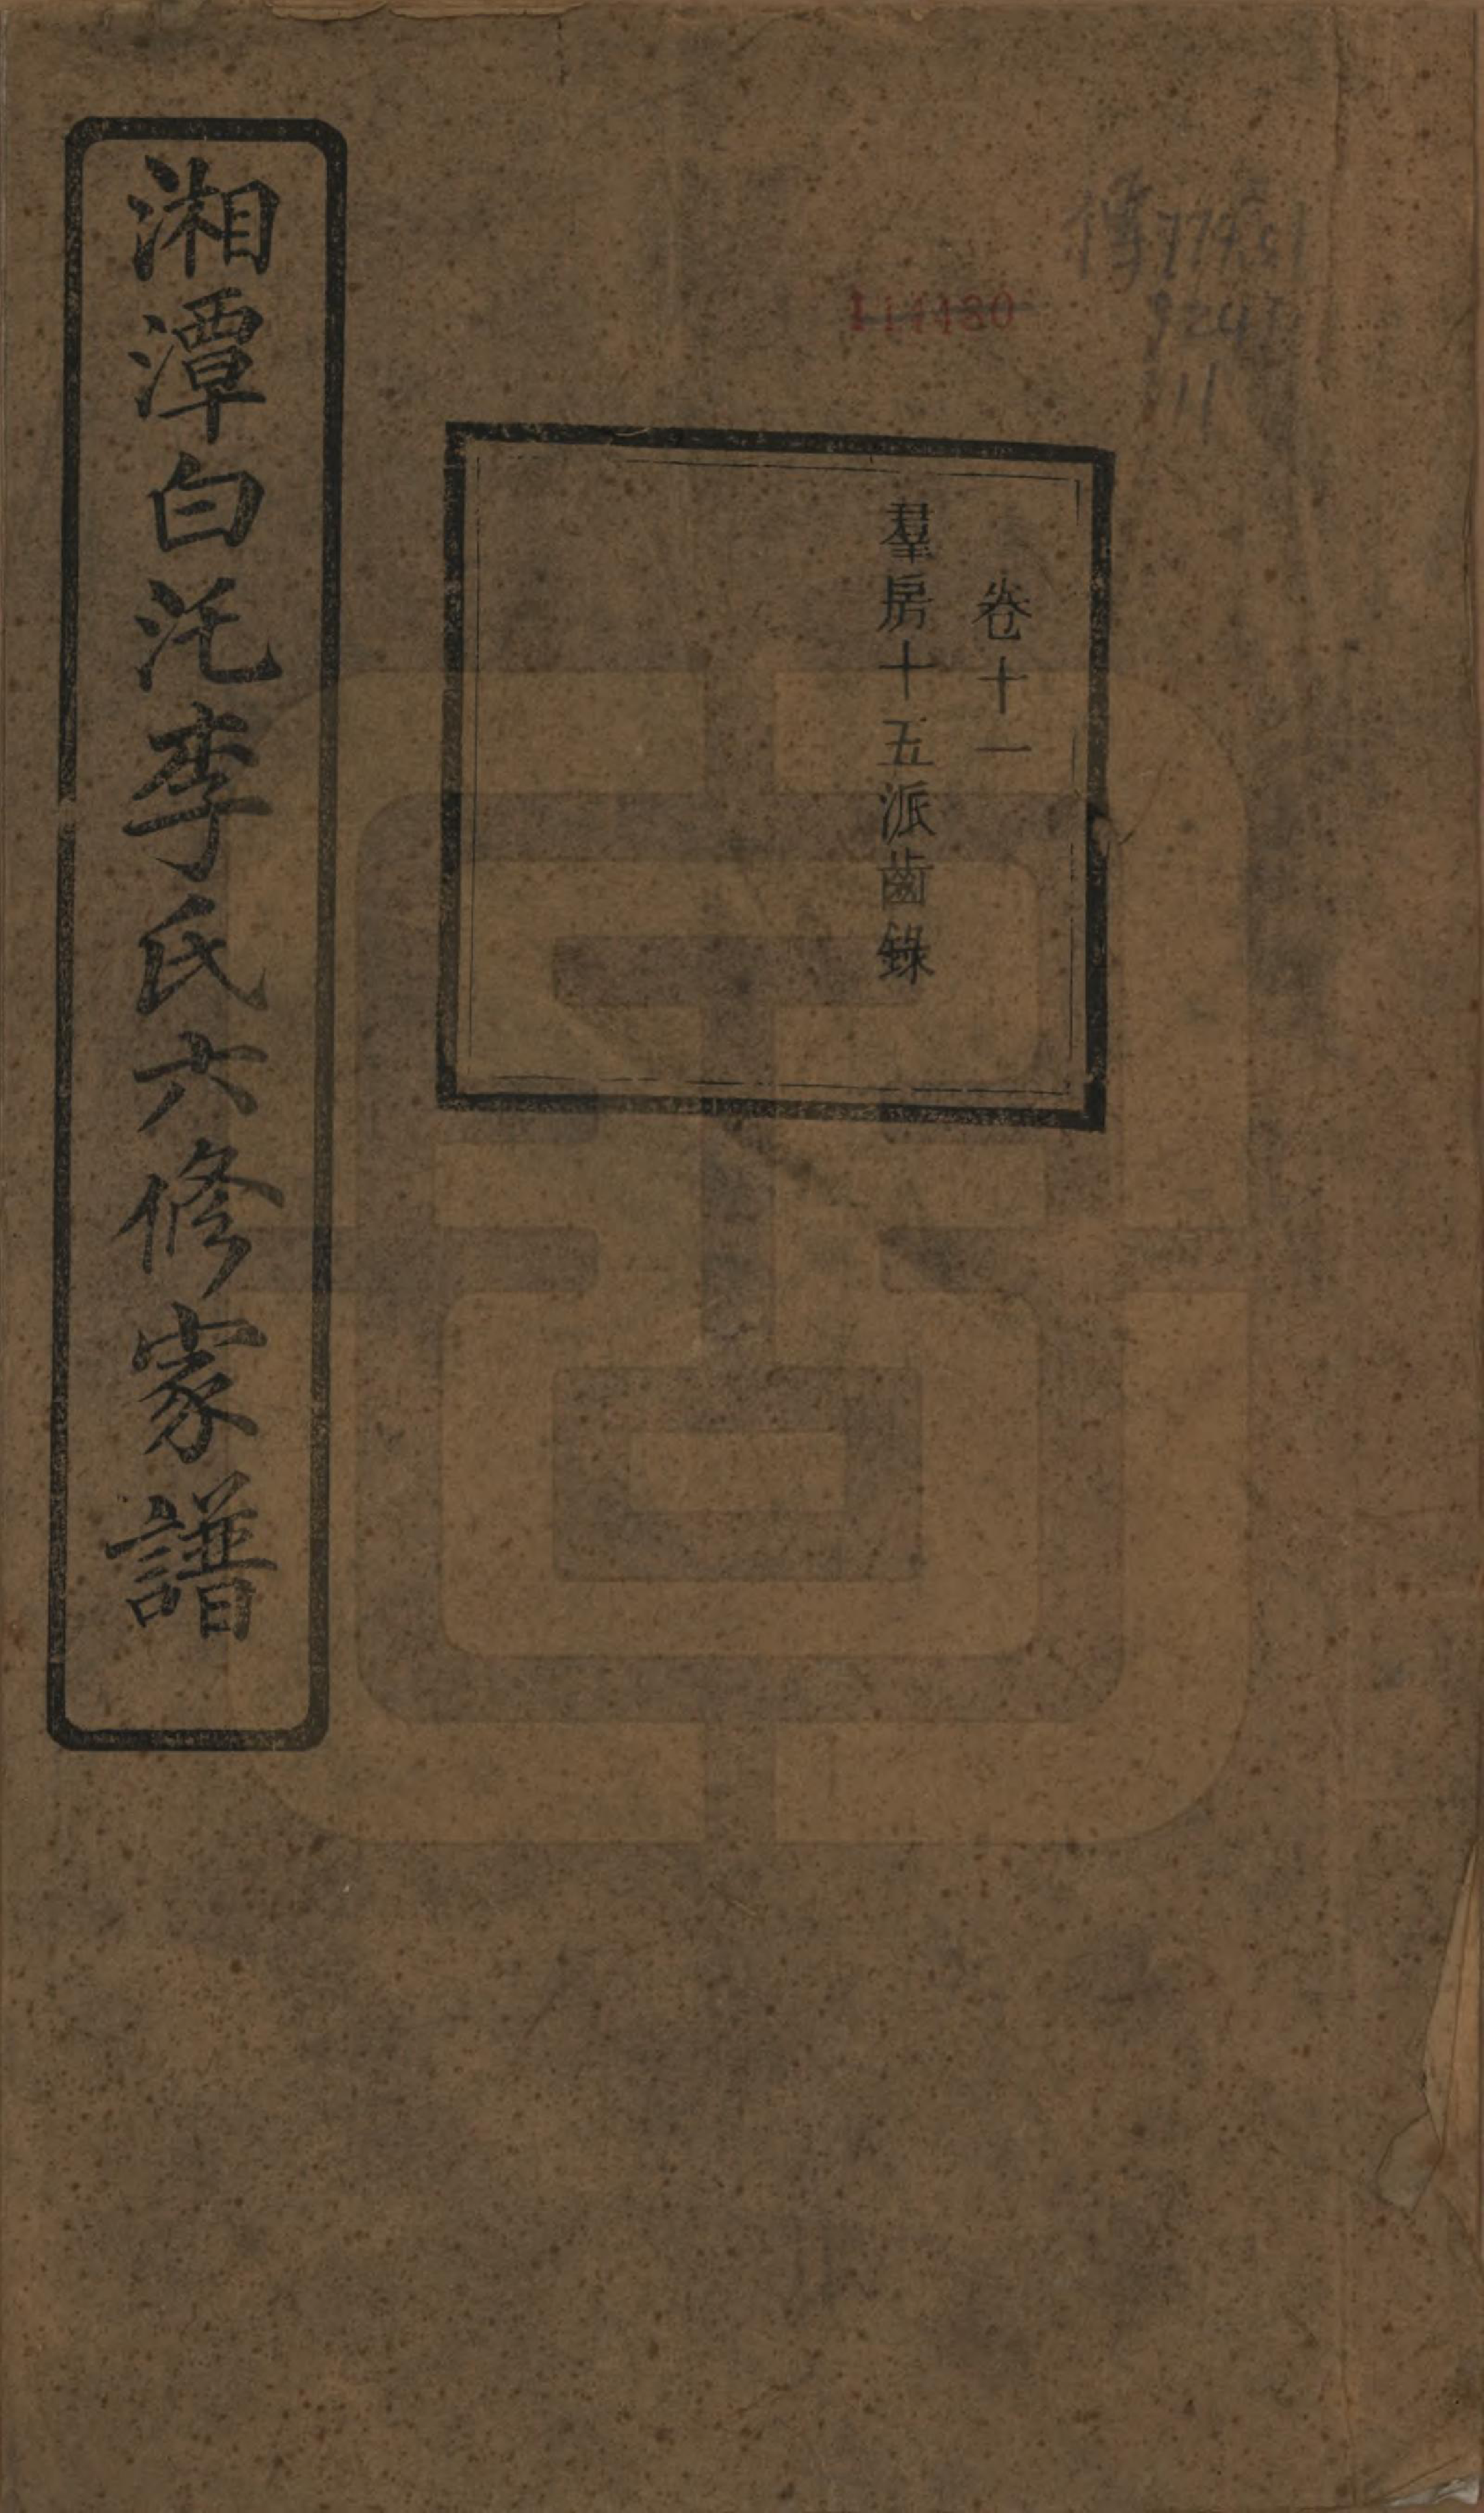 卷十一
羣房十五派齒錄
湘潭白汑李氏六修家譜
114480
11